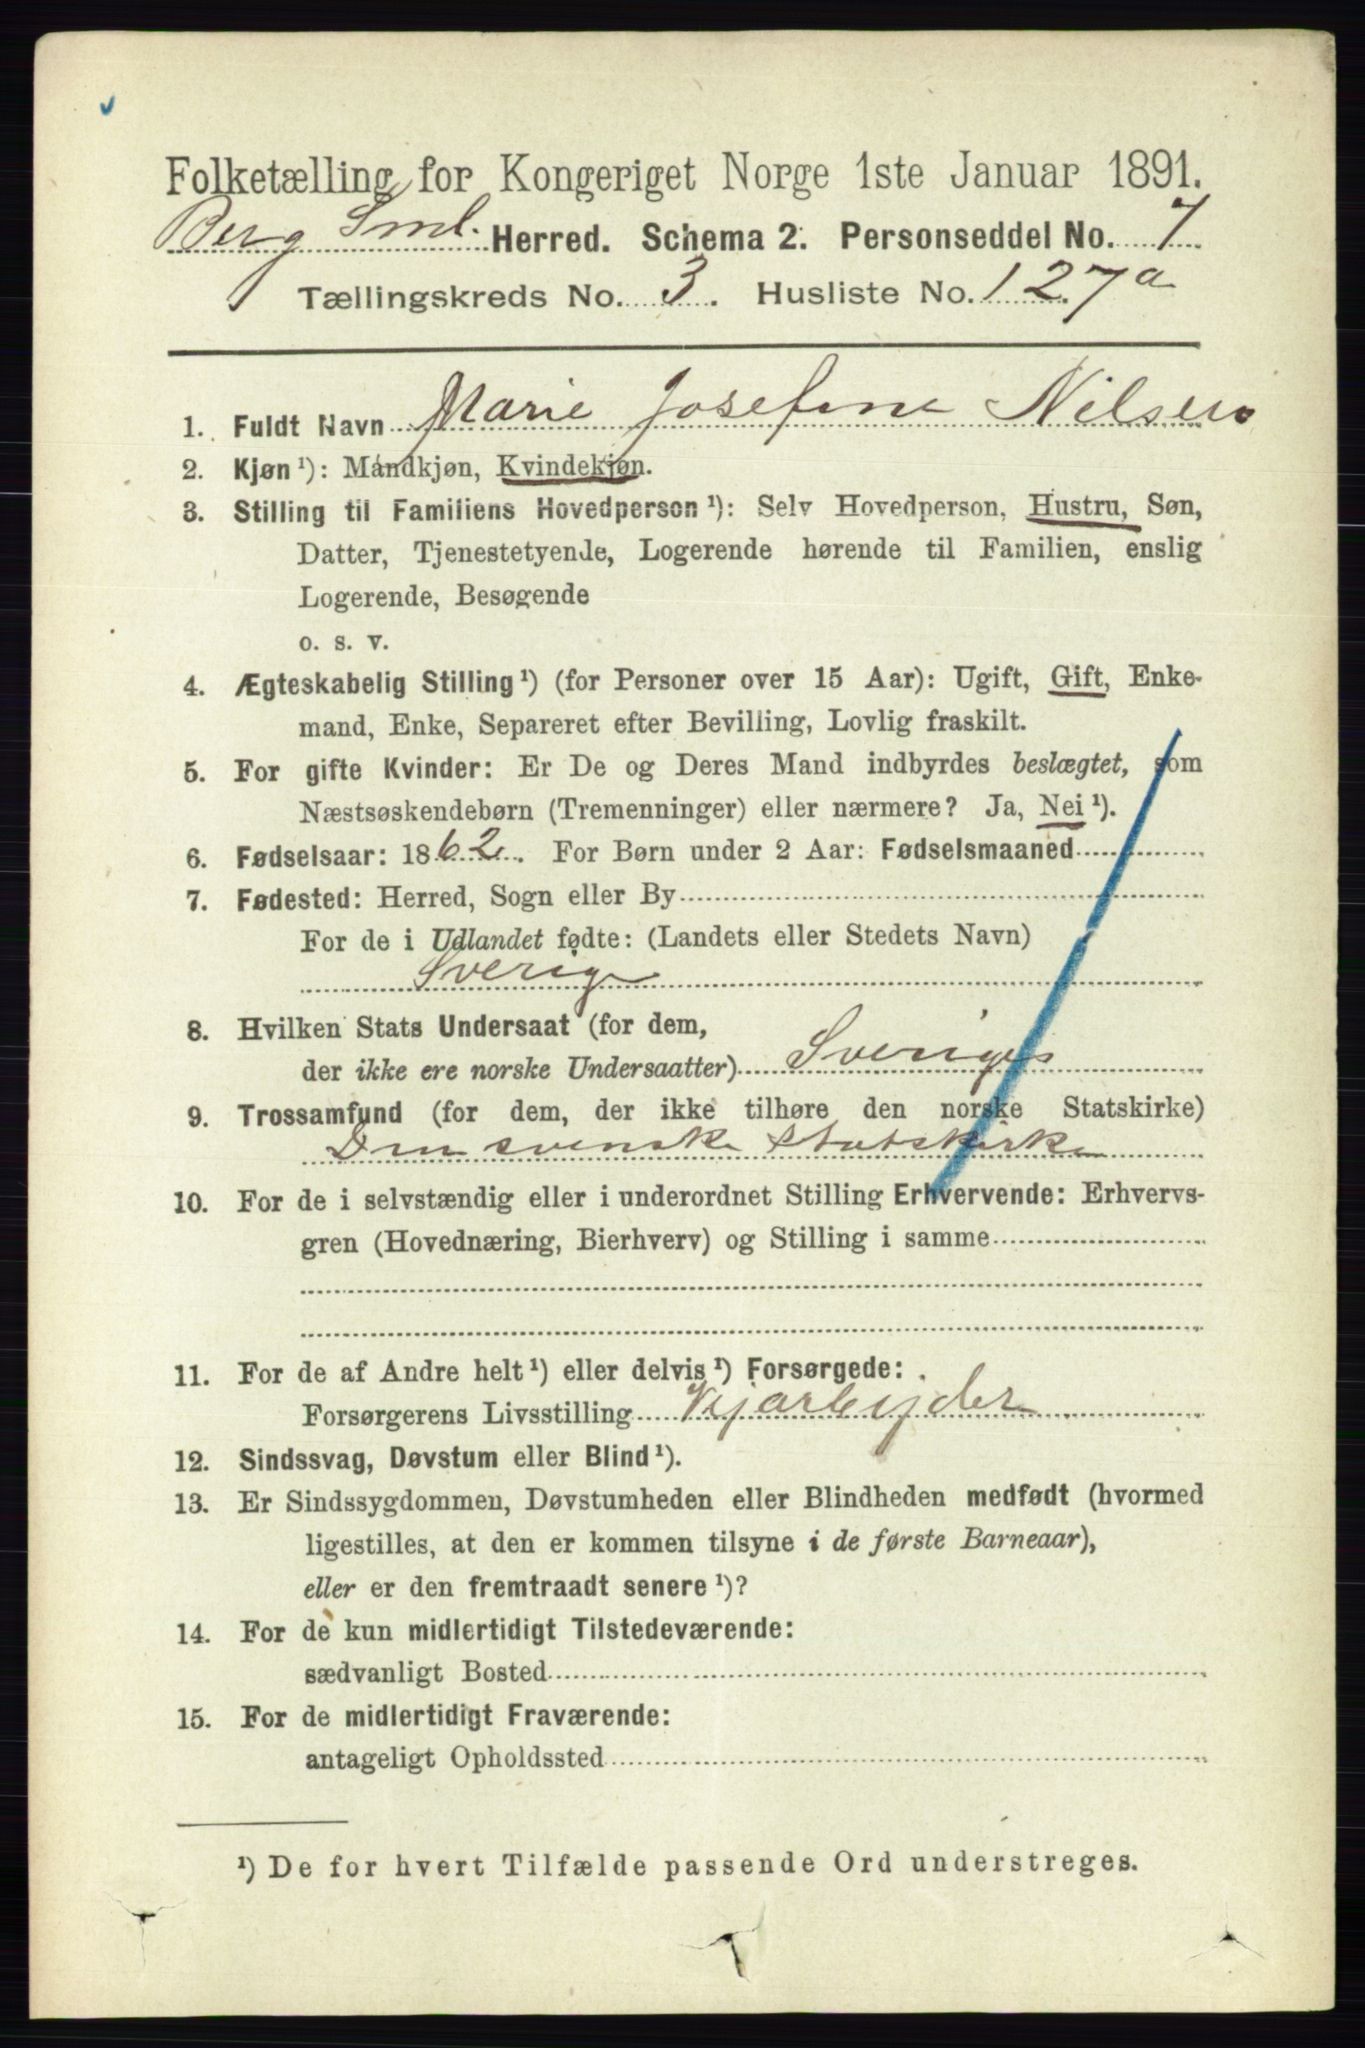 Folketælling for Kongeriget Norge 1ste Januar 1891.
Berg Sml. Herred. Schema 2. Personseddel No. 7
Tællingskreds No. 3. Husliste No. 127a
1. Fuldt Navn Marie Josefine Nilsen
2. Kjøn ¹): Mandkjøn, Kvindekjøn.
3. Stilling til Familiens Hovedperson ¹): Selv Hovedperson, Hustru, Søn,
Datter, Tjenestetyende, Logerende hørende til Familien, enslig
Logerende, Besøgende
o. s. v.
4. Ægteskabelig Stilling ¹) (for Personer over 15 Aar): Ugift, Gift, Enke-
mand, Enke, Separeret efter Bevilling, Lovlig fraskilt.
5. For gifte Kvinder: Er De og Deres Mand indbyrdes beslægtet, som
Næstsøskendebørn (Tremenninger) eller nærmere? Ja, Nei ¹).
6. Fødselsaar: 1862. For Børn under 2 Aar: Fødselsmaaned
7. Fødested: Herred, Sogn eller By
For de i Udlandet fødte: (Landets eller Stedets Navn)
Sverige
8. Hvilken Stats Undersaat (for dem,
der ikke ere norske Undersaatter) Sveriges
9. Trossamfund (for dem, der ikke tilhøre den norske Statskirke)
Den svenske Statskirke
10. For de i selvstændig eller i underordnet Stilling Erhvervende: Erhvervs-
gren (Hovednæring, Bierhverv) og Stilling i samme
11. For de af Andre helt ¹) eller delvis ¹) Forsørgede:
Forsørgerens Livsstilling Vejarbejder
12. Sindssvag, Døvstum eller Blind ¹).
13. Er Sindssygdommen, Døvstumheden eller Blindheden medfødt (hvormed
ligestilles, at den er kommen tilsyne i de første Barneaar),
eller er den fremtraadt senere ¹)?
14. For de kun midlertidigt Tilstedeværende:
sædvanligt Bosted
15. For de midlertidigt Fraværende:
antageligt Opholdssted
¹) De for hvert Tilfælde passende Ord understreges.